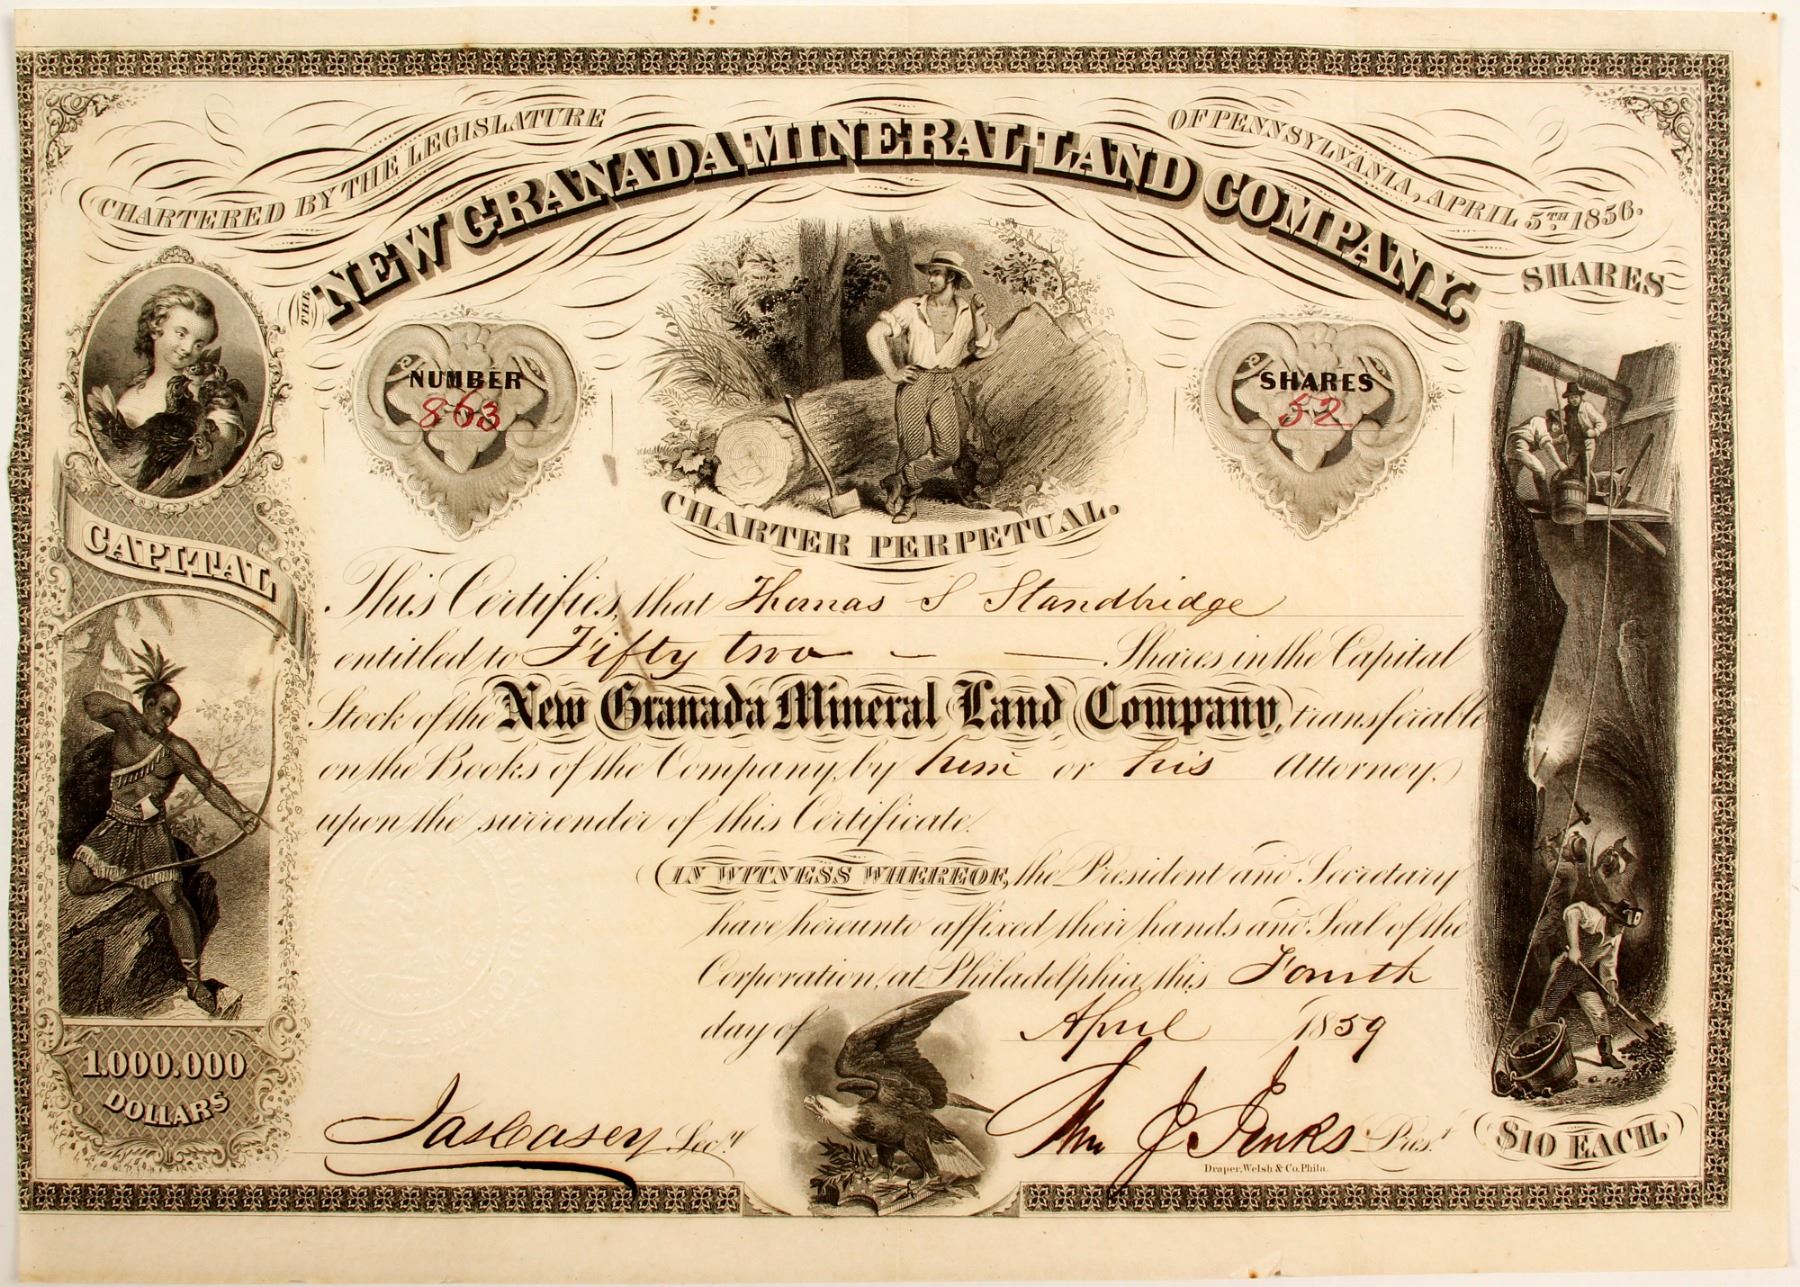 CHARTERED BY THE LEGISLATURE OF PENNSYLVANIA, APRIL 5TH 1856.
THE NEW GRANADA MINERAL LAND COMPANY.
SHARES
NUMBER
863
SHARES
52
CHARTER PERPETUAL.
CAPITAL
This Certifies, that Thomas S Standbridge
entitled to Fifty two — — Shares in the Capital
Stock of the New Granada Mineral Land Company, transferable
on the Books of the Company, by him or his Attorney,
upon the surrender of this Certificate.
IN WITNESS WHEREOF, the President and Secretary
have hereunto affixed their hands and Seal of the
Corporation, at Philadelphia, this Fourth
day of April 1859
1.000.000
DOLLARS
Jas Casey Secy
Wm J Jenks Pres.t
$10 EACH.
Draper, Welsh & Co. Phila.